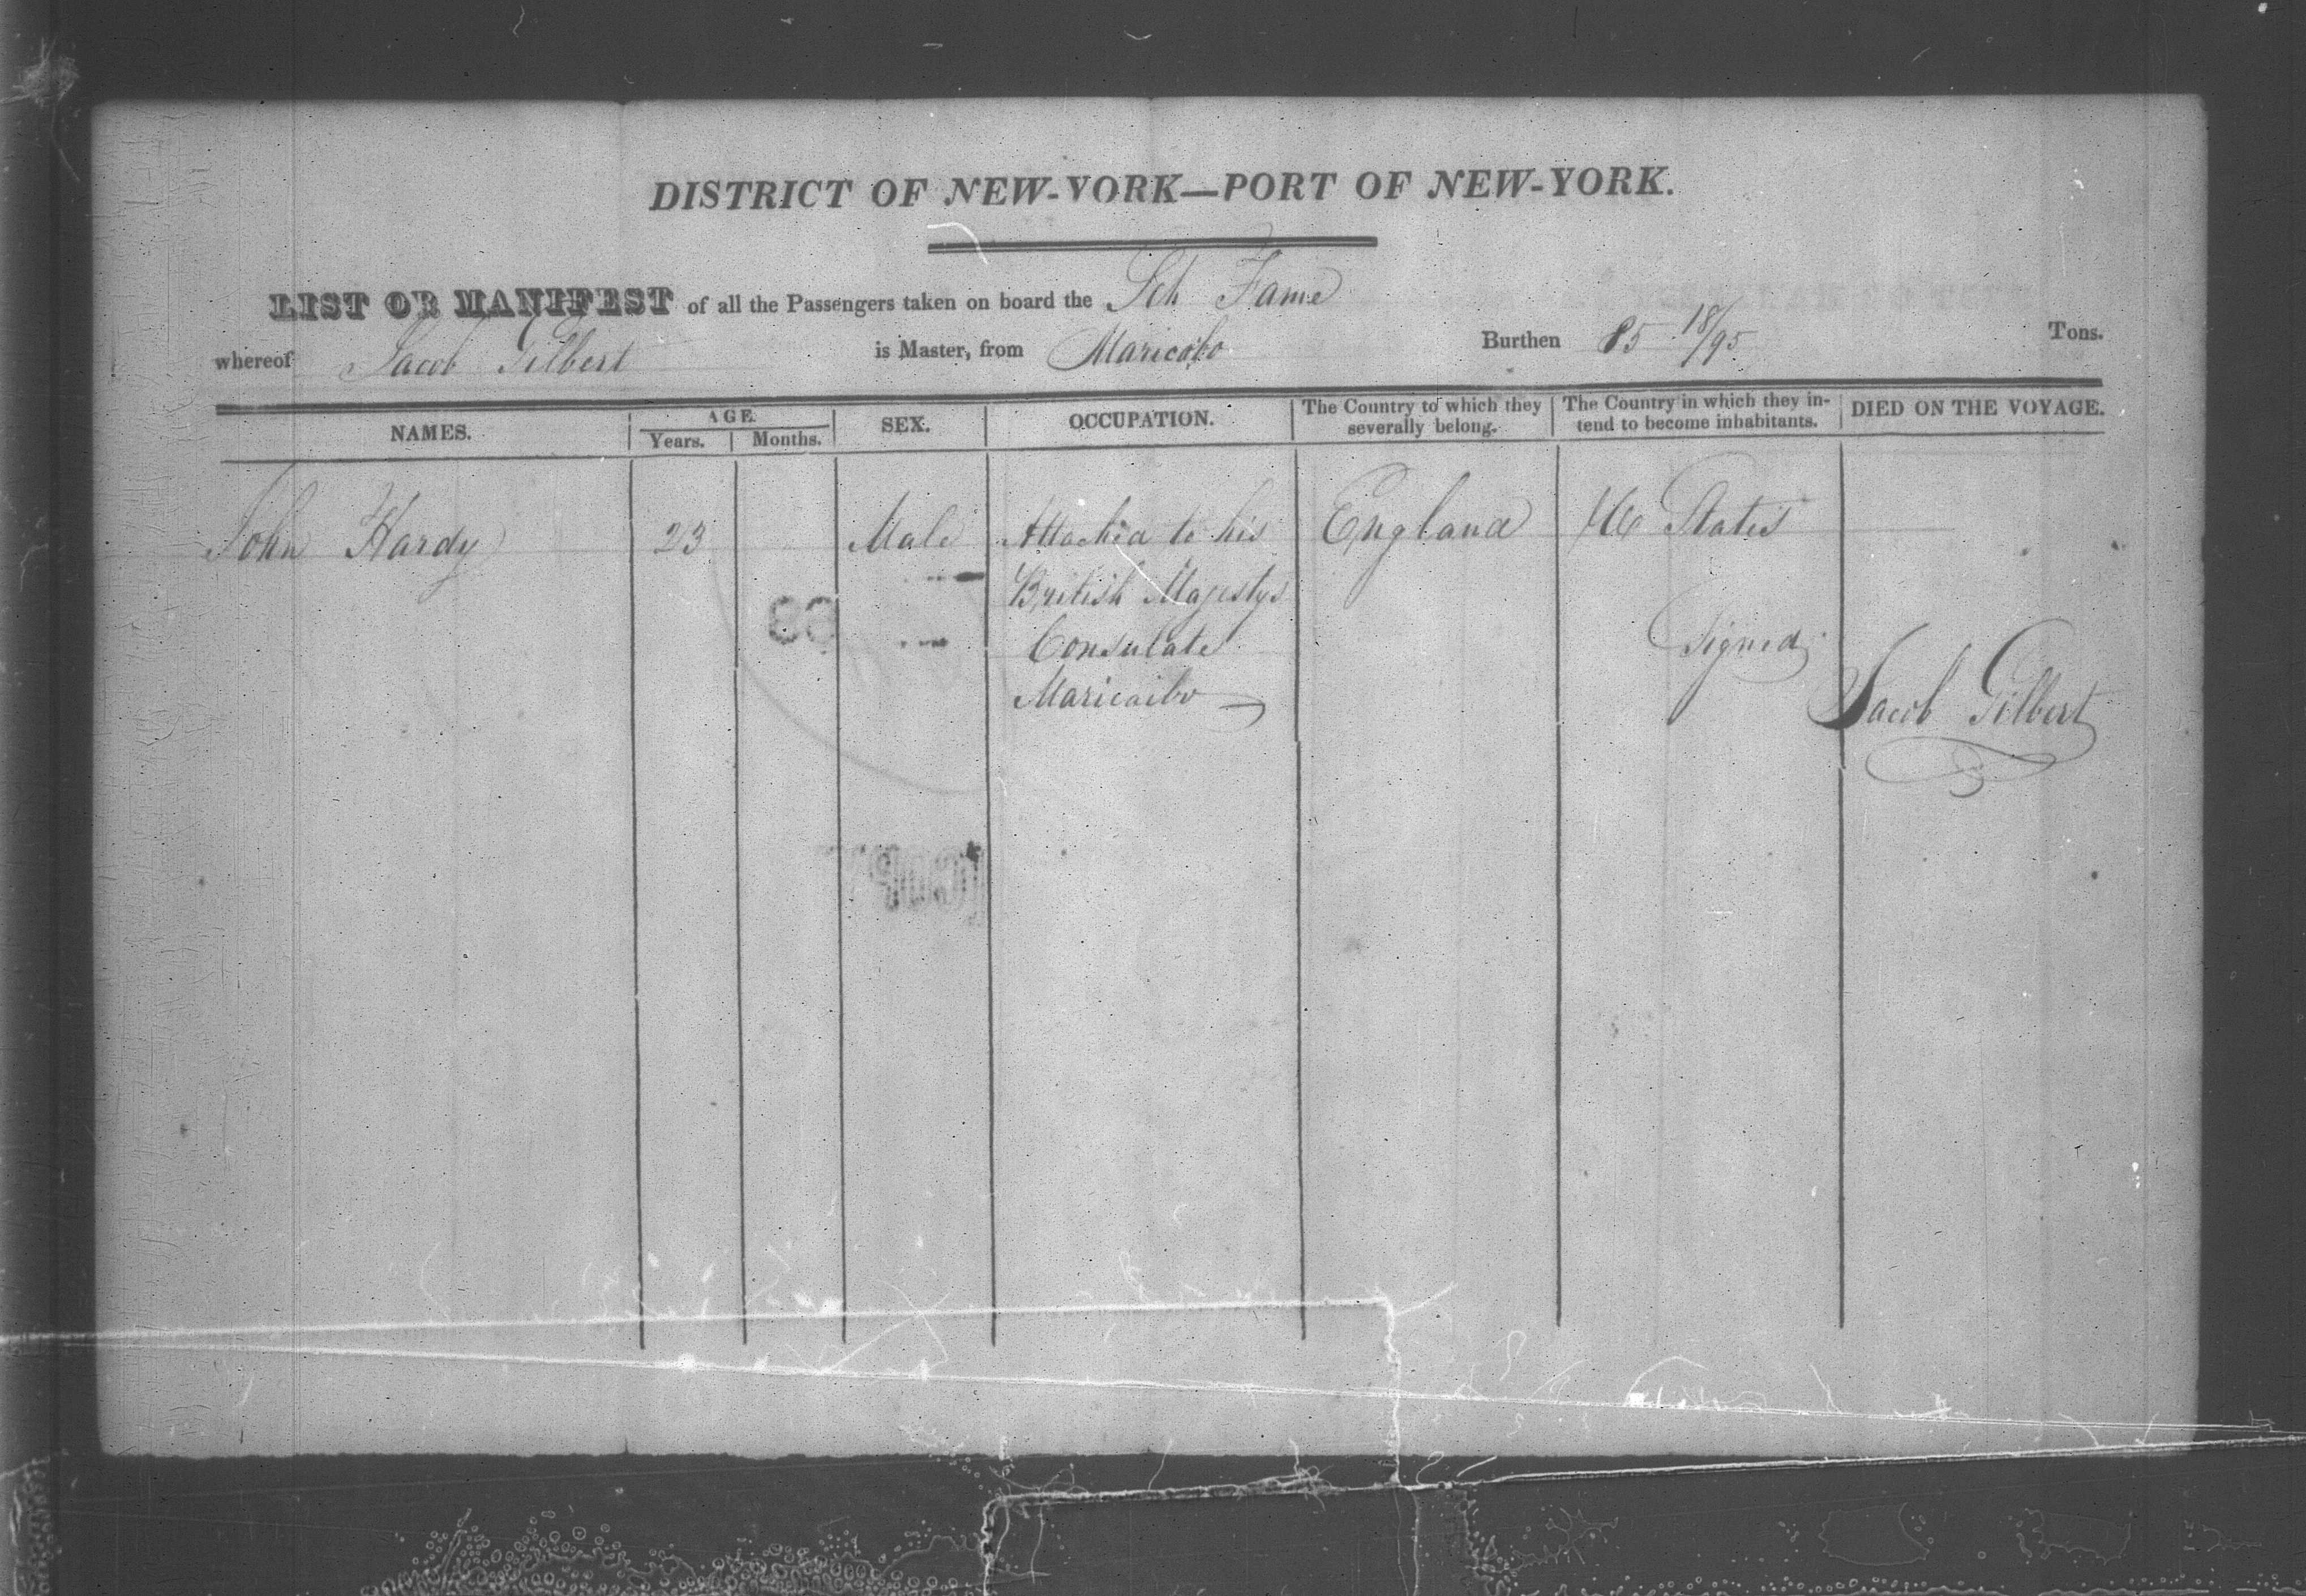 DISTRICT OF NEW-YORK—PORT OF NEW-YORK.
LIST OR MANIFEST of all the Passengers taken on board the Sch Fame
whereof Jacob Gilbert is Master, from Maricabo Burthen 85 18/95 Tons.
NAMES. AGE. Years. Months. SEX. OCCUPATION. The Country to which they severally belong. The Country in which they intend to become inhabitants. DIED ON THE VOYAGE.
John Hardy 23 Male Attachd to his England U States
British Majestys
Consulate Signed
Maricaibo Jacob Gilbert